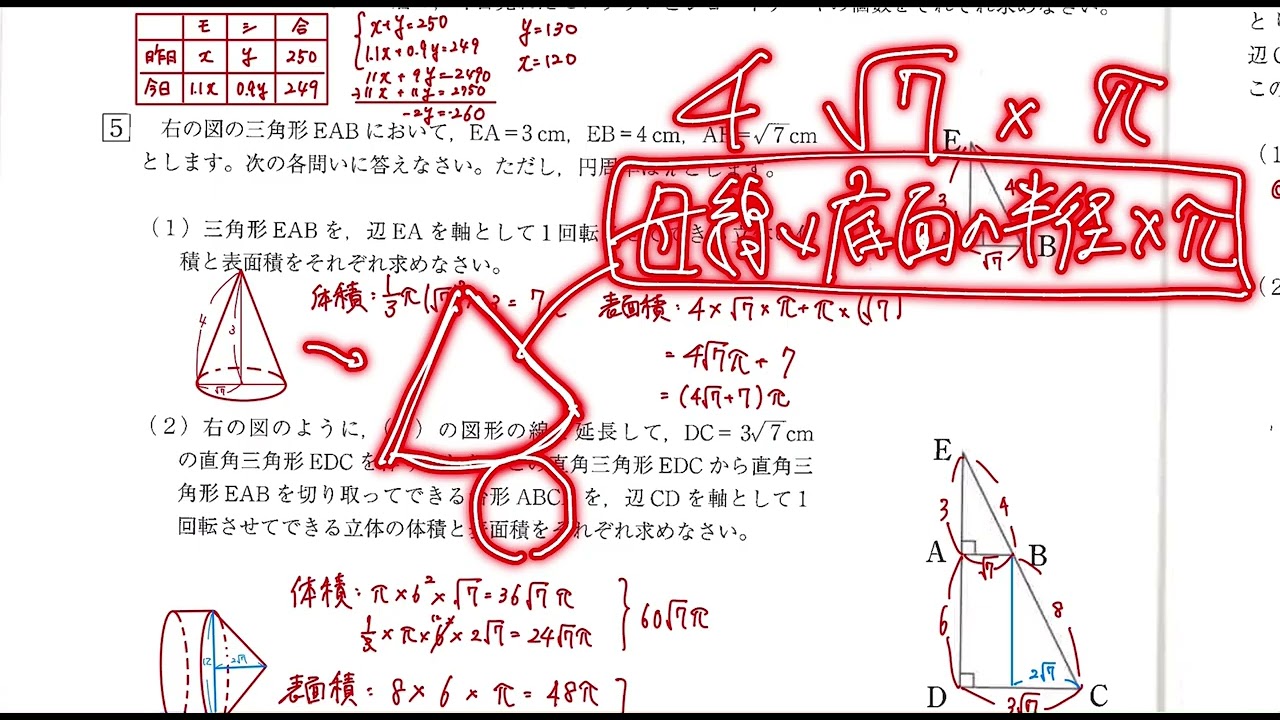 モ シ 合
昨日 x y 250
今日 1.1x 0.9y 249
x+y=250
1.1x+0.9y=249
11x+9y=2490
-)11x+11y=2750
-2y=-260
y=130
x=120
5 右の図の三角形EABにおいて，EA＝3 cm，EB＝4 cm，AB＝√7 cm
とします。次の各問いに答えなさい。ただし，円周率はπとします。
4√7×π
母線×底面の半径×π
(1) 三角形EABを，辺EAを軸として1回転
積と表面積をそれぞれ求めなさい。
E
3 4
B
√7
4 3 √7
体積：1/3π(√7
= 7π
表面積：4×√7×π+π×(√7)
=4√7π+7
=(4√7+7)π
(2) 右の図のように，の図形の線を延長して，DC＝3√7cm
の直角三角形EDCを この直角三角形EDCから直角三
角形EABを切り取ってできる台形ABCDを，辺CDを軸として1
回転させてできる立体の体積と表面積をそれぞれ求めなさい。
E
3 4
A √7 B
6 8
2√7
D 3√7 C
体積：π×6²×√7=36√7π
1/3×π×6²×2√7=24√7π
60√7π
12 2√7
表面積：8×6×π=48π